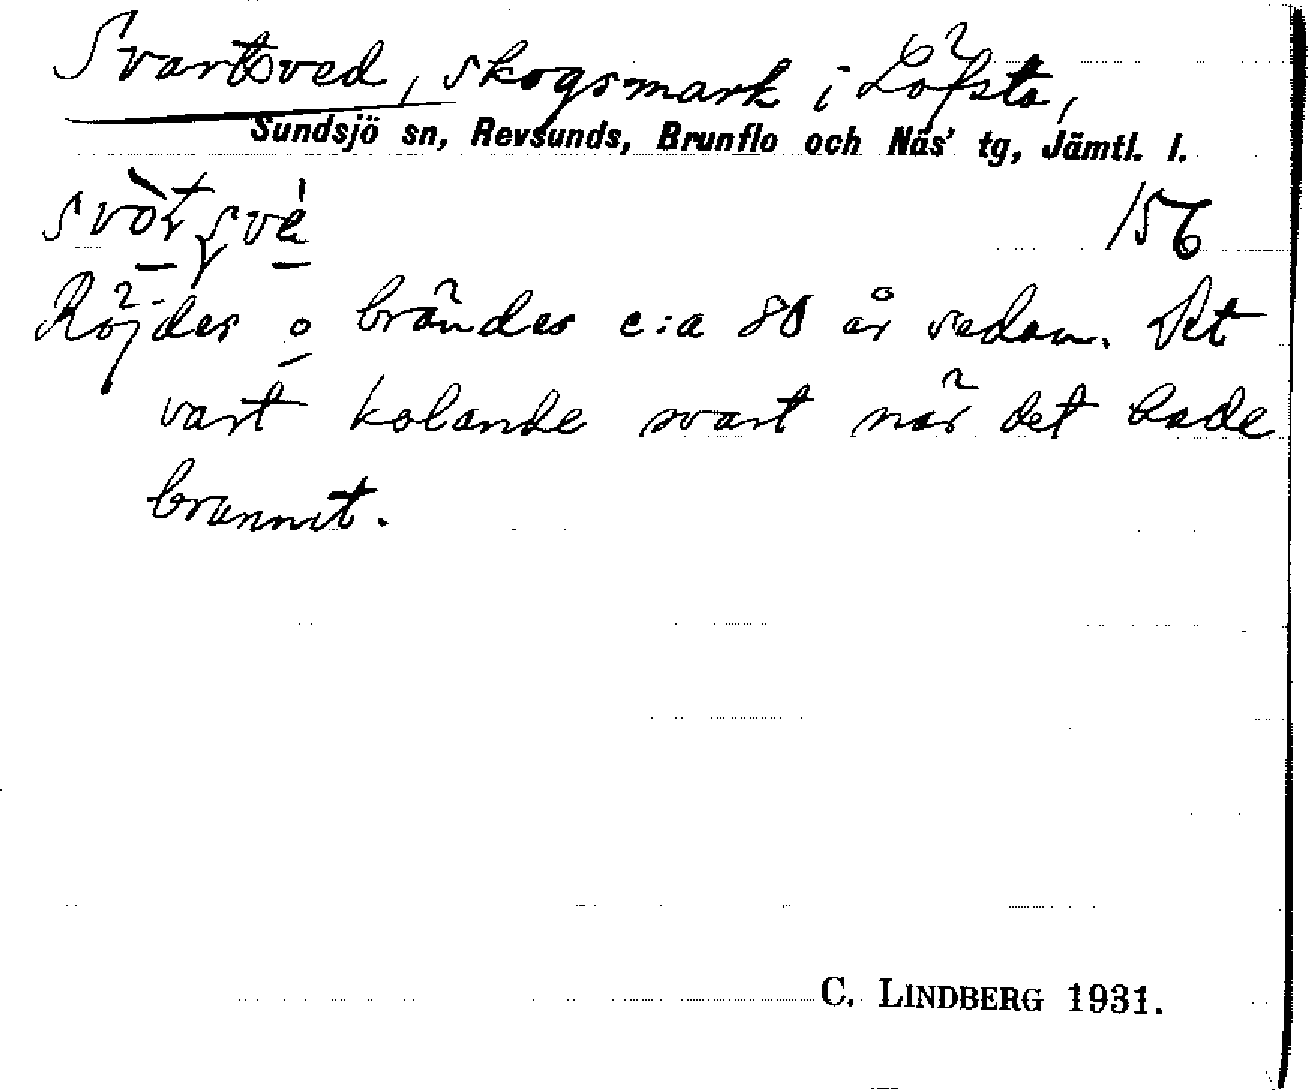 Svartsved, skogsmark i Löfsta,
Sundsjö sn, Revsunds, Brunflo och Näs' tg, Jämtl. l.
156
Röjdes o brändes c:a 80 år sedan. Det
vart kolande svart när det hade
brunnit.
C. LINDBERG 1931.